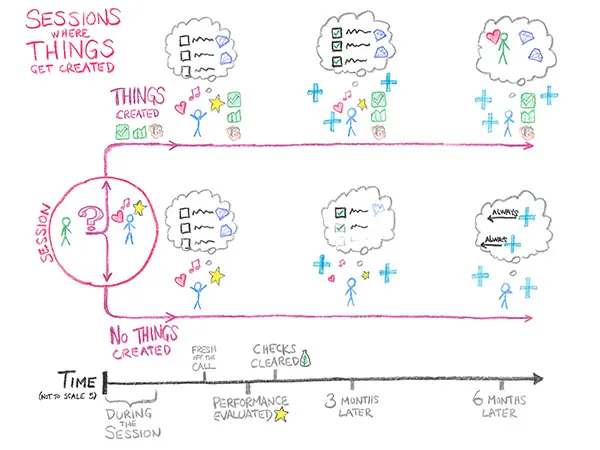 SESSIONS
WHERE
THINGS
GET CREATED
THINGS
CREATED
SESSION
?
ALWAYS
ALWAYS
NO THINGS
CREATED
TIME
DURING
THE
SESSION
FRESH
OFF THE
CALL
PERFORMANCE
EVALUATED
CHECKS
CLEARED
3 MONTHS
LATER
6 MONTHS
LATER
(NOT TO SCALE